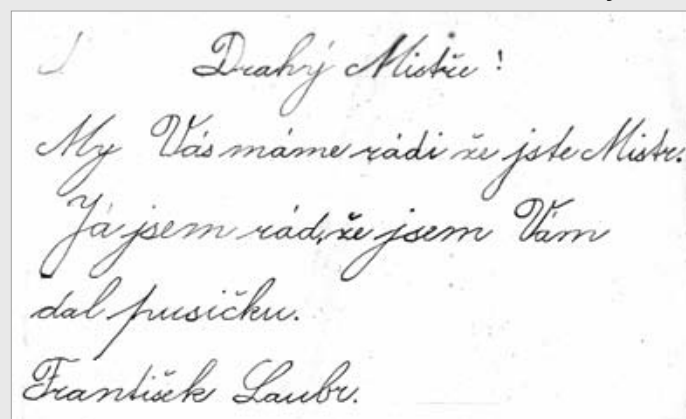 Drahý Mistře!
My Vás máme rádi že jste Mistr.
Já jsem rád, že jsem Vám
dal pusičku.
František Laubr.